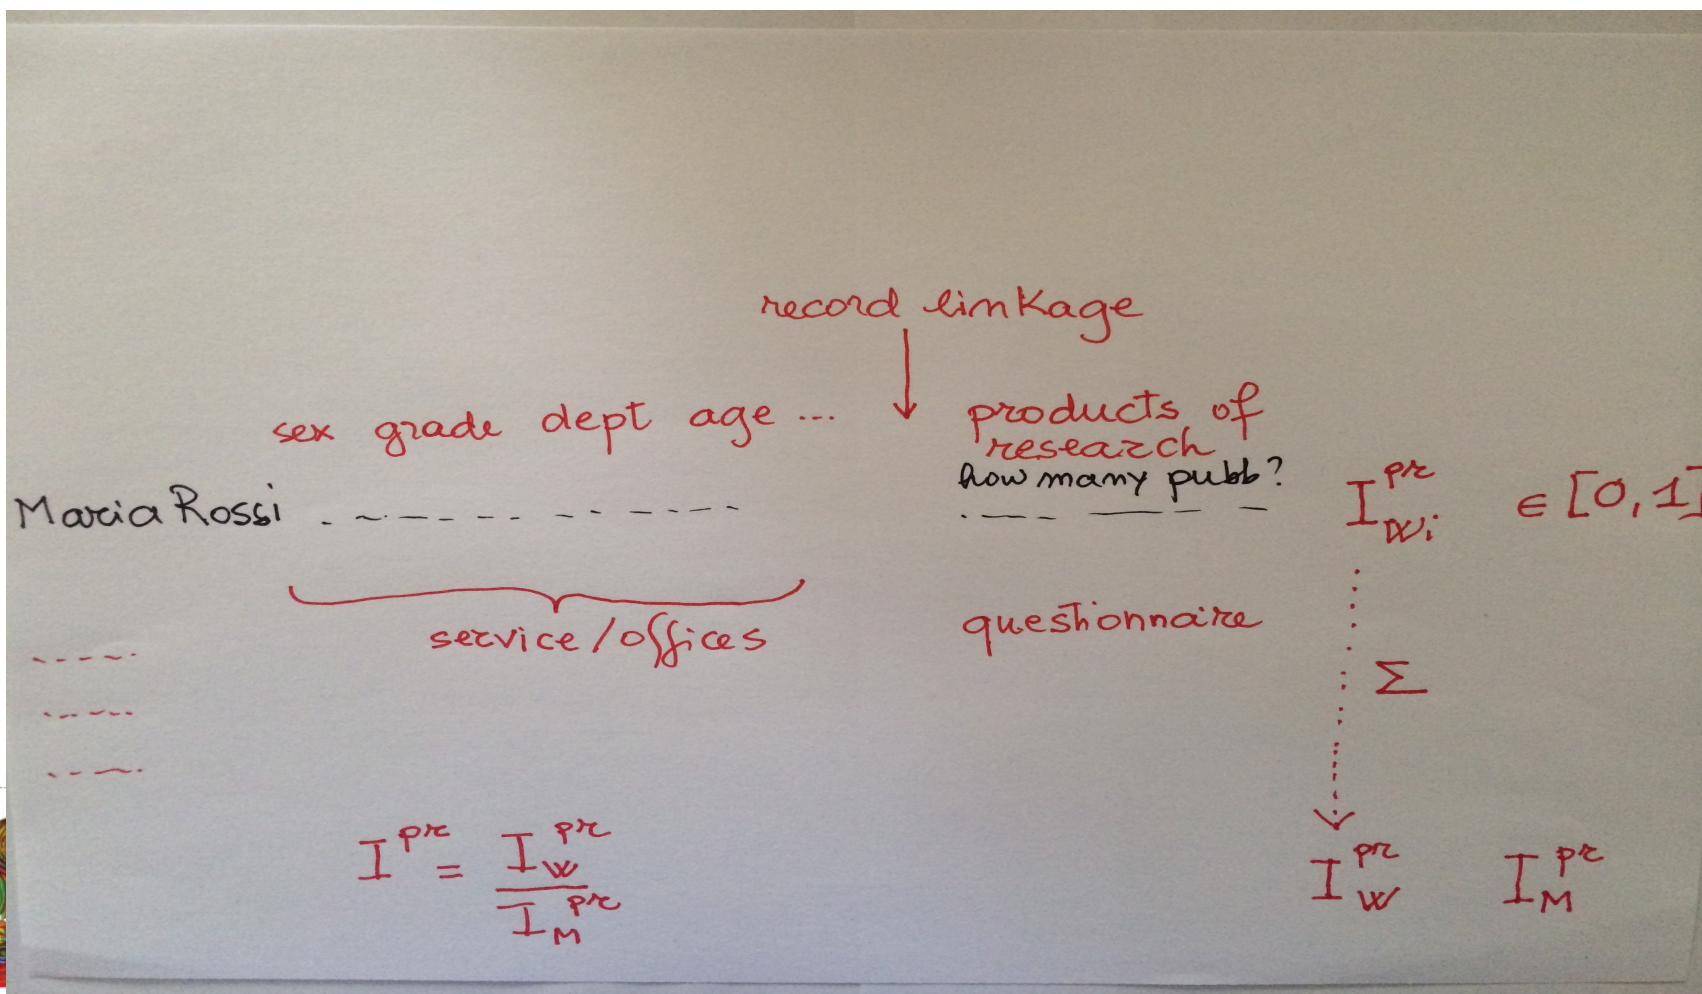 record linkage
sex grade dept age ...
products of
research
how many pubb?
Maria Rossi
I^{pr}_{Wi} ∈ [0,1]
service/offices
questionnaire
Σ
I^{pr} = I^{pr}_W / I^{pr}_M
I^{pr}_W I^{pr}_M